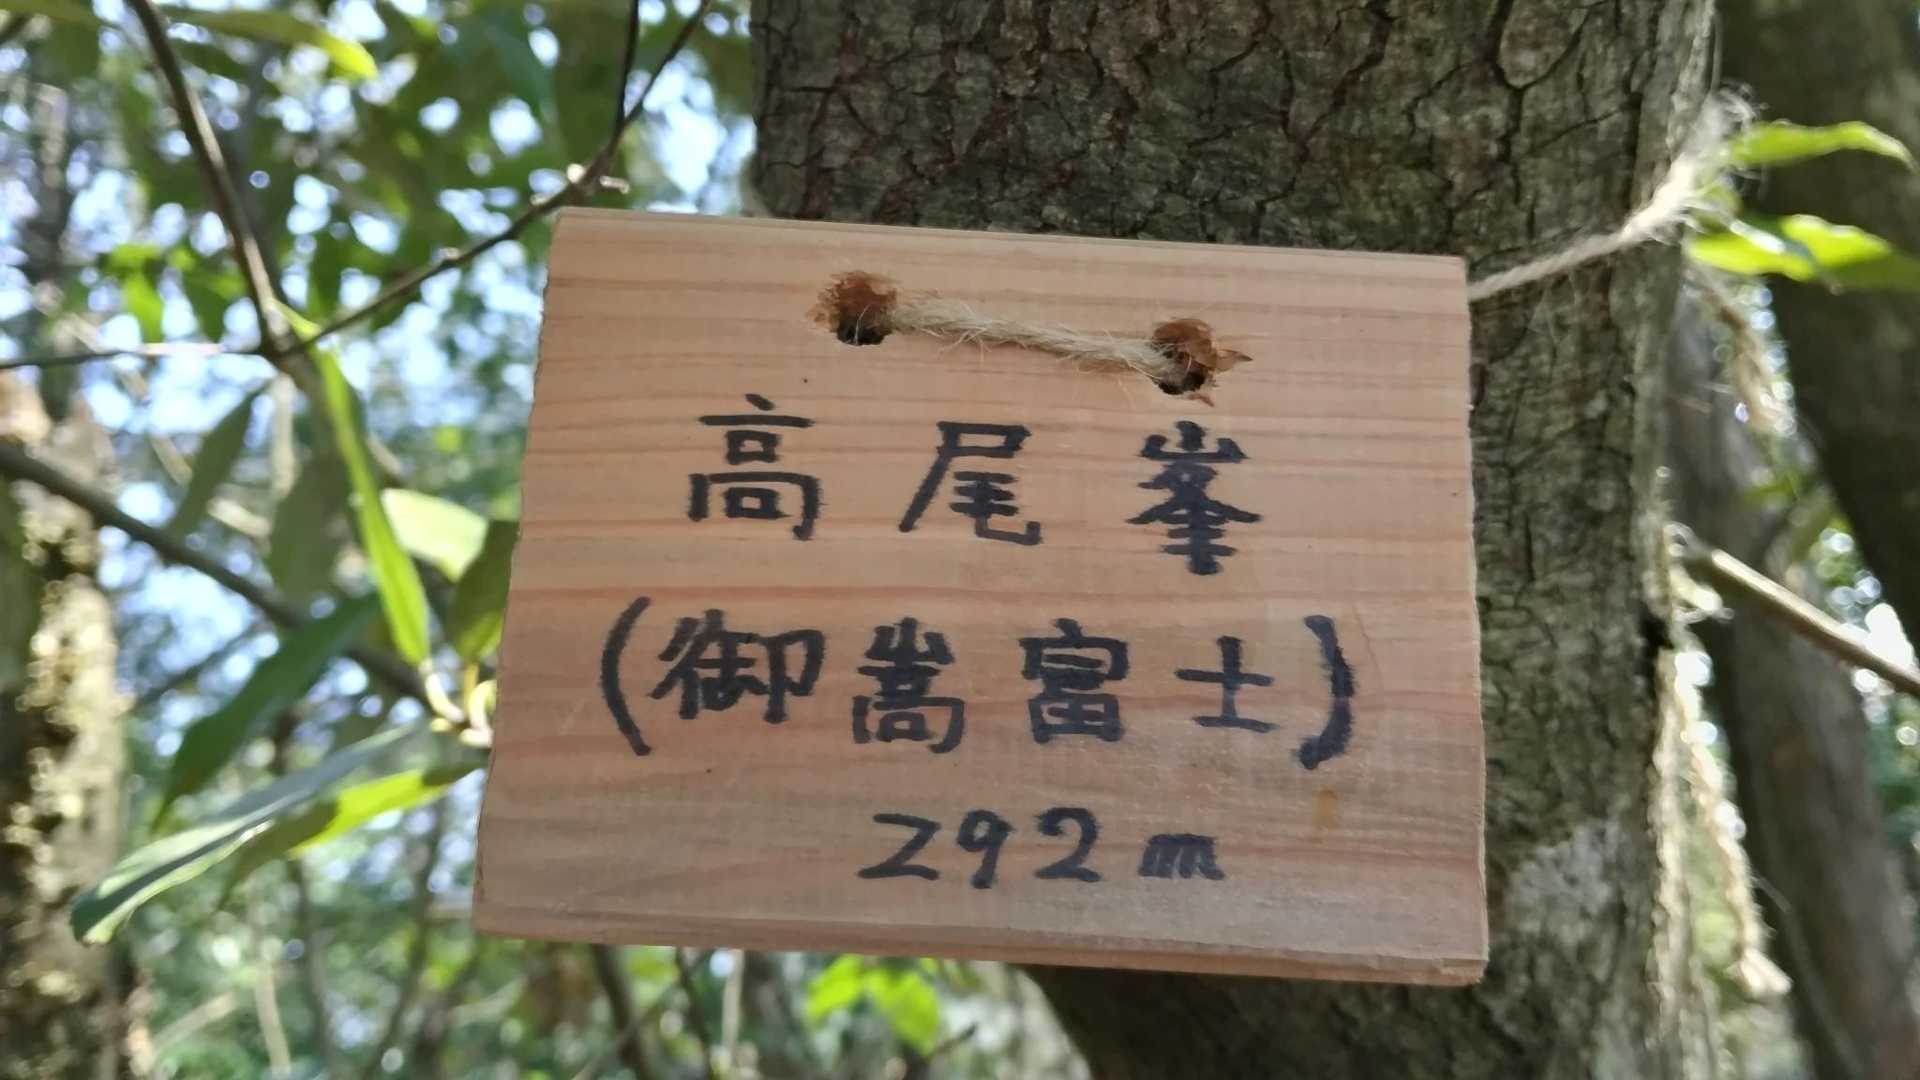 高尾峯
(御嵩富士)
292m